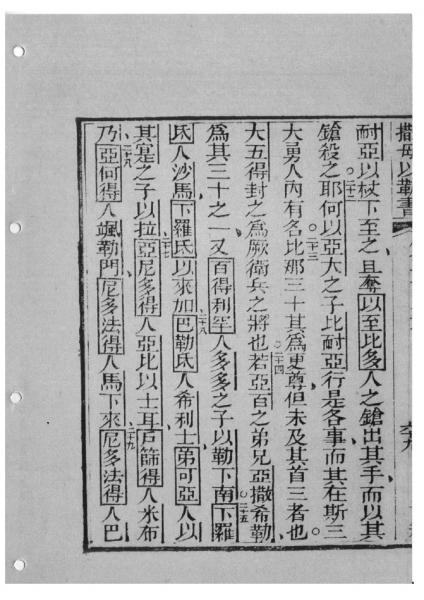 撒母以勒書
耐亞以杖下至之且奪以至比多人之鎗出其手而以其
鎗殺之耶何以亞大之子比耐亞行是各事而其在斯三
二十二
大勇人內有名比那三十其為更尊但未及其首三者也
二十三
大五得封之為厥衛兵之將也若亞百之弟兄亞撒希勒
二十四
為其三十之一又百得利罕人多多之子以勒下南下羅
二十五
氏人沙馬下羅氏以來加巴勒氏人希利士弟可亞人以
二十六
其寔之子以拉亞尼多得人亞比以士耳戶篩得人米布
二十七
乃亞何得人颯勒門尼多法得人馬下來尼多法得人巴
二十八
二十九